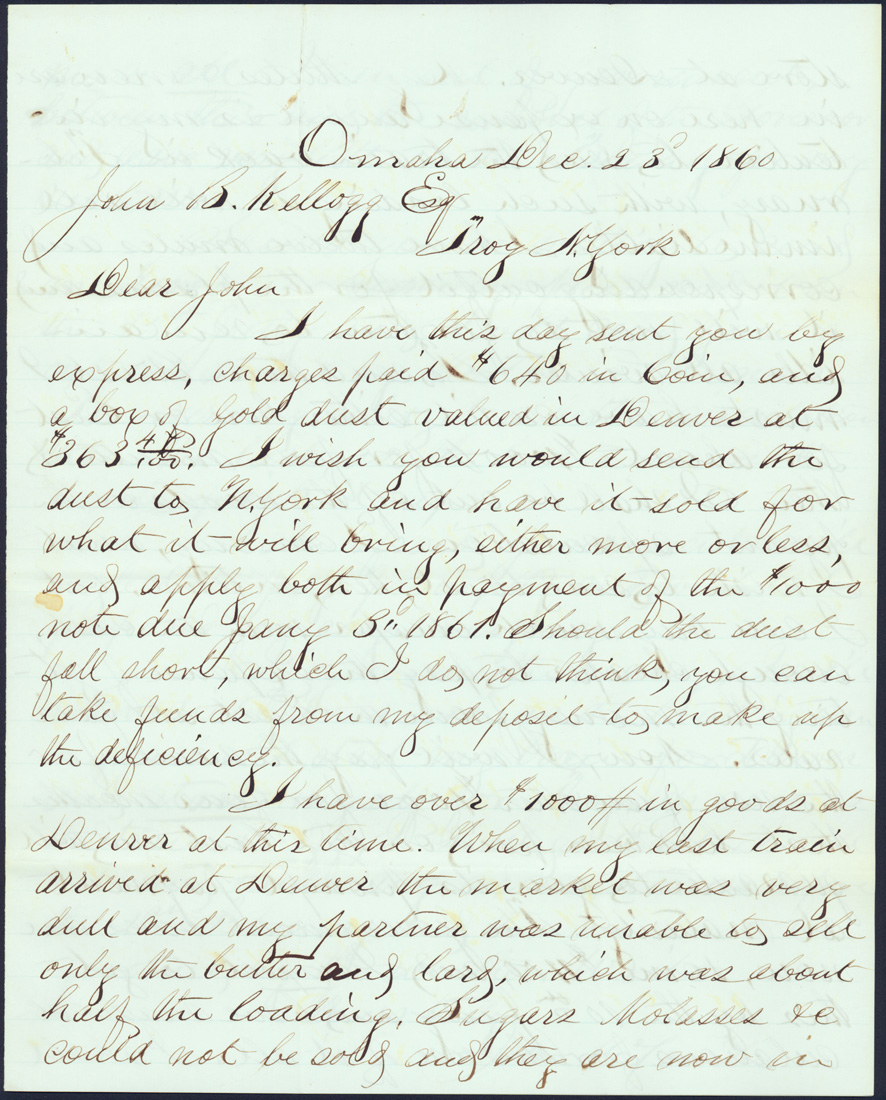 Omaha Dec. 23d 1860
John B. Kellogg Esq
Troy N.York
Dear John
I have this day sent you by
express, charges paid $640 in Coin, and
a box of Gold dust valued in Denver at
$363 40/100. I wish you would send the
dust to N.York and have it sold for
what it will bring, either more or less,
and apply both in payment of the $1000
note due Jany 3d 1861. Should the dust
fall short, which I do not think, you can
take funds from my deposit to make up
the deficiency.
I have over $1000# in goods at
Denver at this time. When my last train
arrived at Denver the market was very
dull and my partner was unable to sell
only the butter and lard, which was about
half the loading. Sugars Molasses &c
could not be sold and they are now in